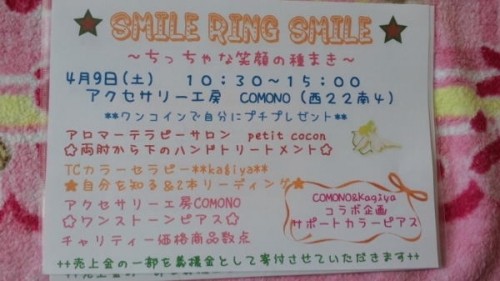 ★ SMILE RING SMILE ★
～ちっちゃな笑顔の種まき～
4月9日(土) 10:30～15:00
アクセサリー工房 COMONO(西22南4)
**ワンコインで自分にプチプレゼント**
アロマーテラピーサロン petit cocon
✩両肘から下のハンドトリートメント✩
TCカラーセラピー**kagiya**
★自分を知る&2本リーディング★
アクセサリー工房COMONO
✩ワンストーンピアス✩
チャリティー価格商品数点
COMONO&Kagiya
コラボ企画
サポートカラーピアス
++売上金の一部を義援金として寄付させていただきます++